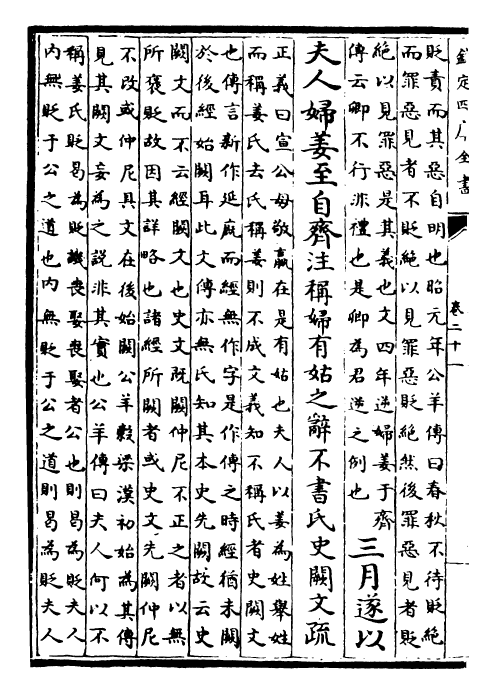 欽定四庫全書
卷二十一
貶責而其惡自明也昭元年公羊傳曰春秋不待貶絶
而罪惡見者不貶絶以見罪惡貶絶然後罪惡見者貶
絶以見罪惡是其義也文四年逆婦姜于齊
傳云卿不行非禮也是卿為君逆之例也
三月遂以
夫人婦姜至自齊注稱婦有姑之辭不書氏史闕文疏
正義曰宣公母敬嬴在是有姑也夫人以姜為姓舉姓
而稱姜氏去氏稱姜則不成文義知不稱氏者史闕文
也傳言新作延廐而經無作字是作傳之時經猶未闕
於後經始闕耳此文傳亦無氏知其本史先闕故云史
闕文而不云經闕文也史文既闕仲尼不正之者以無
所褒貶故因其詳略也諸經所闕者或史文先闕仲尼
不改或仲尼具文在後始闕公羊穀梁漢初始為其傳
見其闕文妄為之說非其實也公羊傳曰夫人何以不
稱姜氏貶曷為貶譏喪娶喪娶者公也則曷為貶夫人
内無貶于公之道也内無貶于公之道則曷為貶夫人